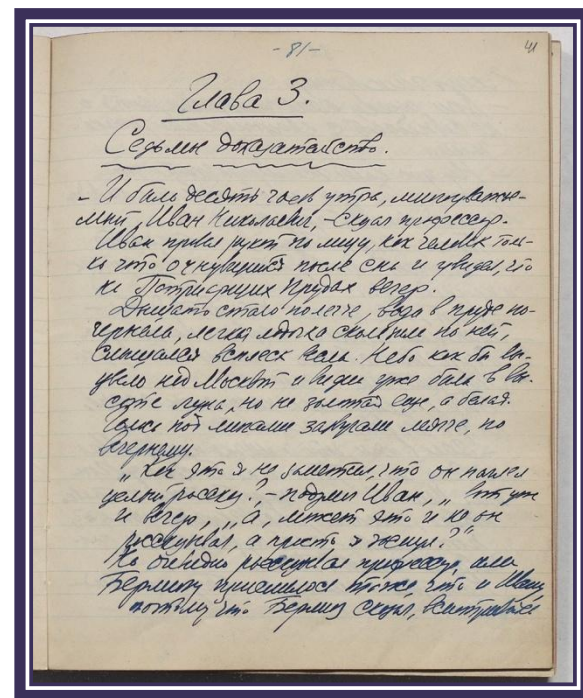 - 81 -
41
Глава 3.
Седьмое доказательство.
- И было десять часов утра, многоуважае-
мый Иван Николаевич, - сказал профессор.
Иван провел рукой по лицу, как человек толь-
ко что очнувшийся после сна и увидел, что
на Патриарших Прудах вечер.
Дышать стало полегче, вода в пруде по-
чернела, легкая лодочка скользила по ней,
слышался всплеск весла. Небо как бы вы-
цвело над Москвой и видна уже была в вы-
соте луна, но не золотая еще, а белая.
Голоса под липами звучали мягче, по
вечернему.
"Как это я не заметил, что он наплел
целый рассказ?, - подумал Иван, " вот уже
и вечер, "а, может это и не он
рассказывал, а просто я заснул?"
Но очевидно рассказывал профессор, или
Берлиозу приснилось то же, что и Ивану,
потому что Берлиоз сказал, всматриваясь